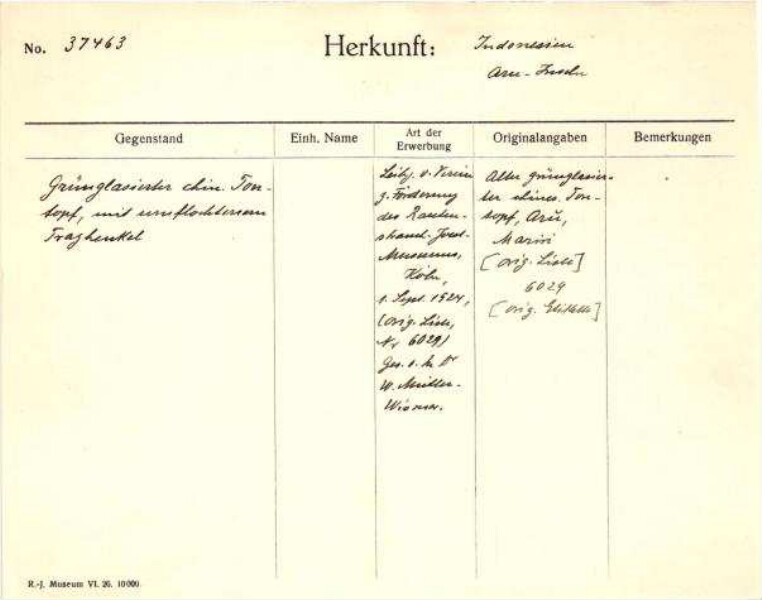 No. 37463
Herkunft:
Indonesien
Aru-Inseln
Gegenstand
Einh. Name
Art der
Erwerbung
Originalangaben
Bemerkungen
Grünglasierter chin. Ton-
topf, mit umflochtenem
Traghenkel
v. Verein
z. Förderung
des Rauten-
strauch-Joest-
Museums,
Köln,
1. Sept. 1924,
(orig. Liste,
Nr 6029)
Ges. v. H. Dr
W. Müller-
Wismar.
Alter grünglasier-
ter chines. Ton-
topf, Aru,
[orig. Liste]
6029
[orig. Etikette]
R.-J. Museum VI. 26. 10000.